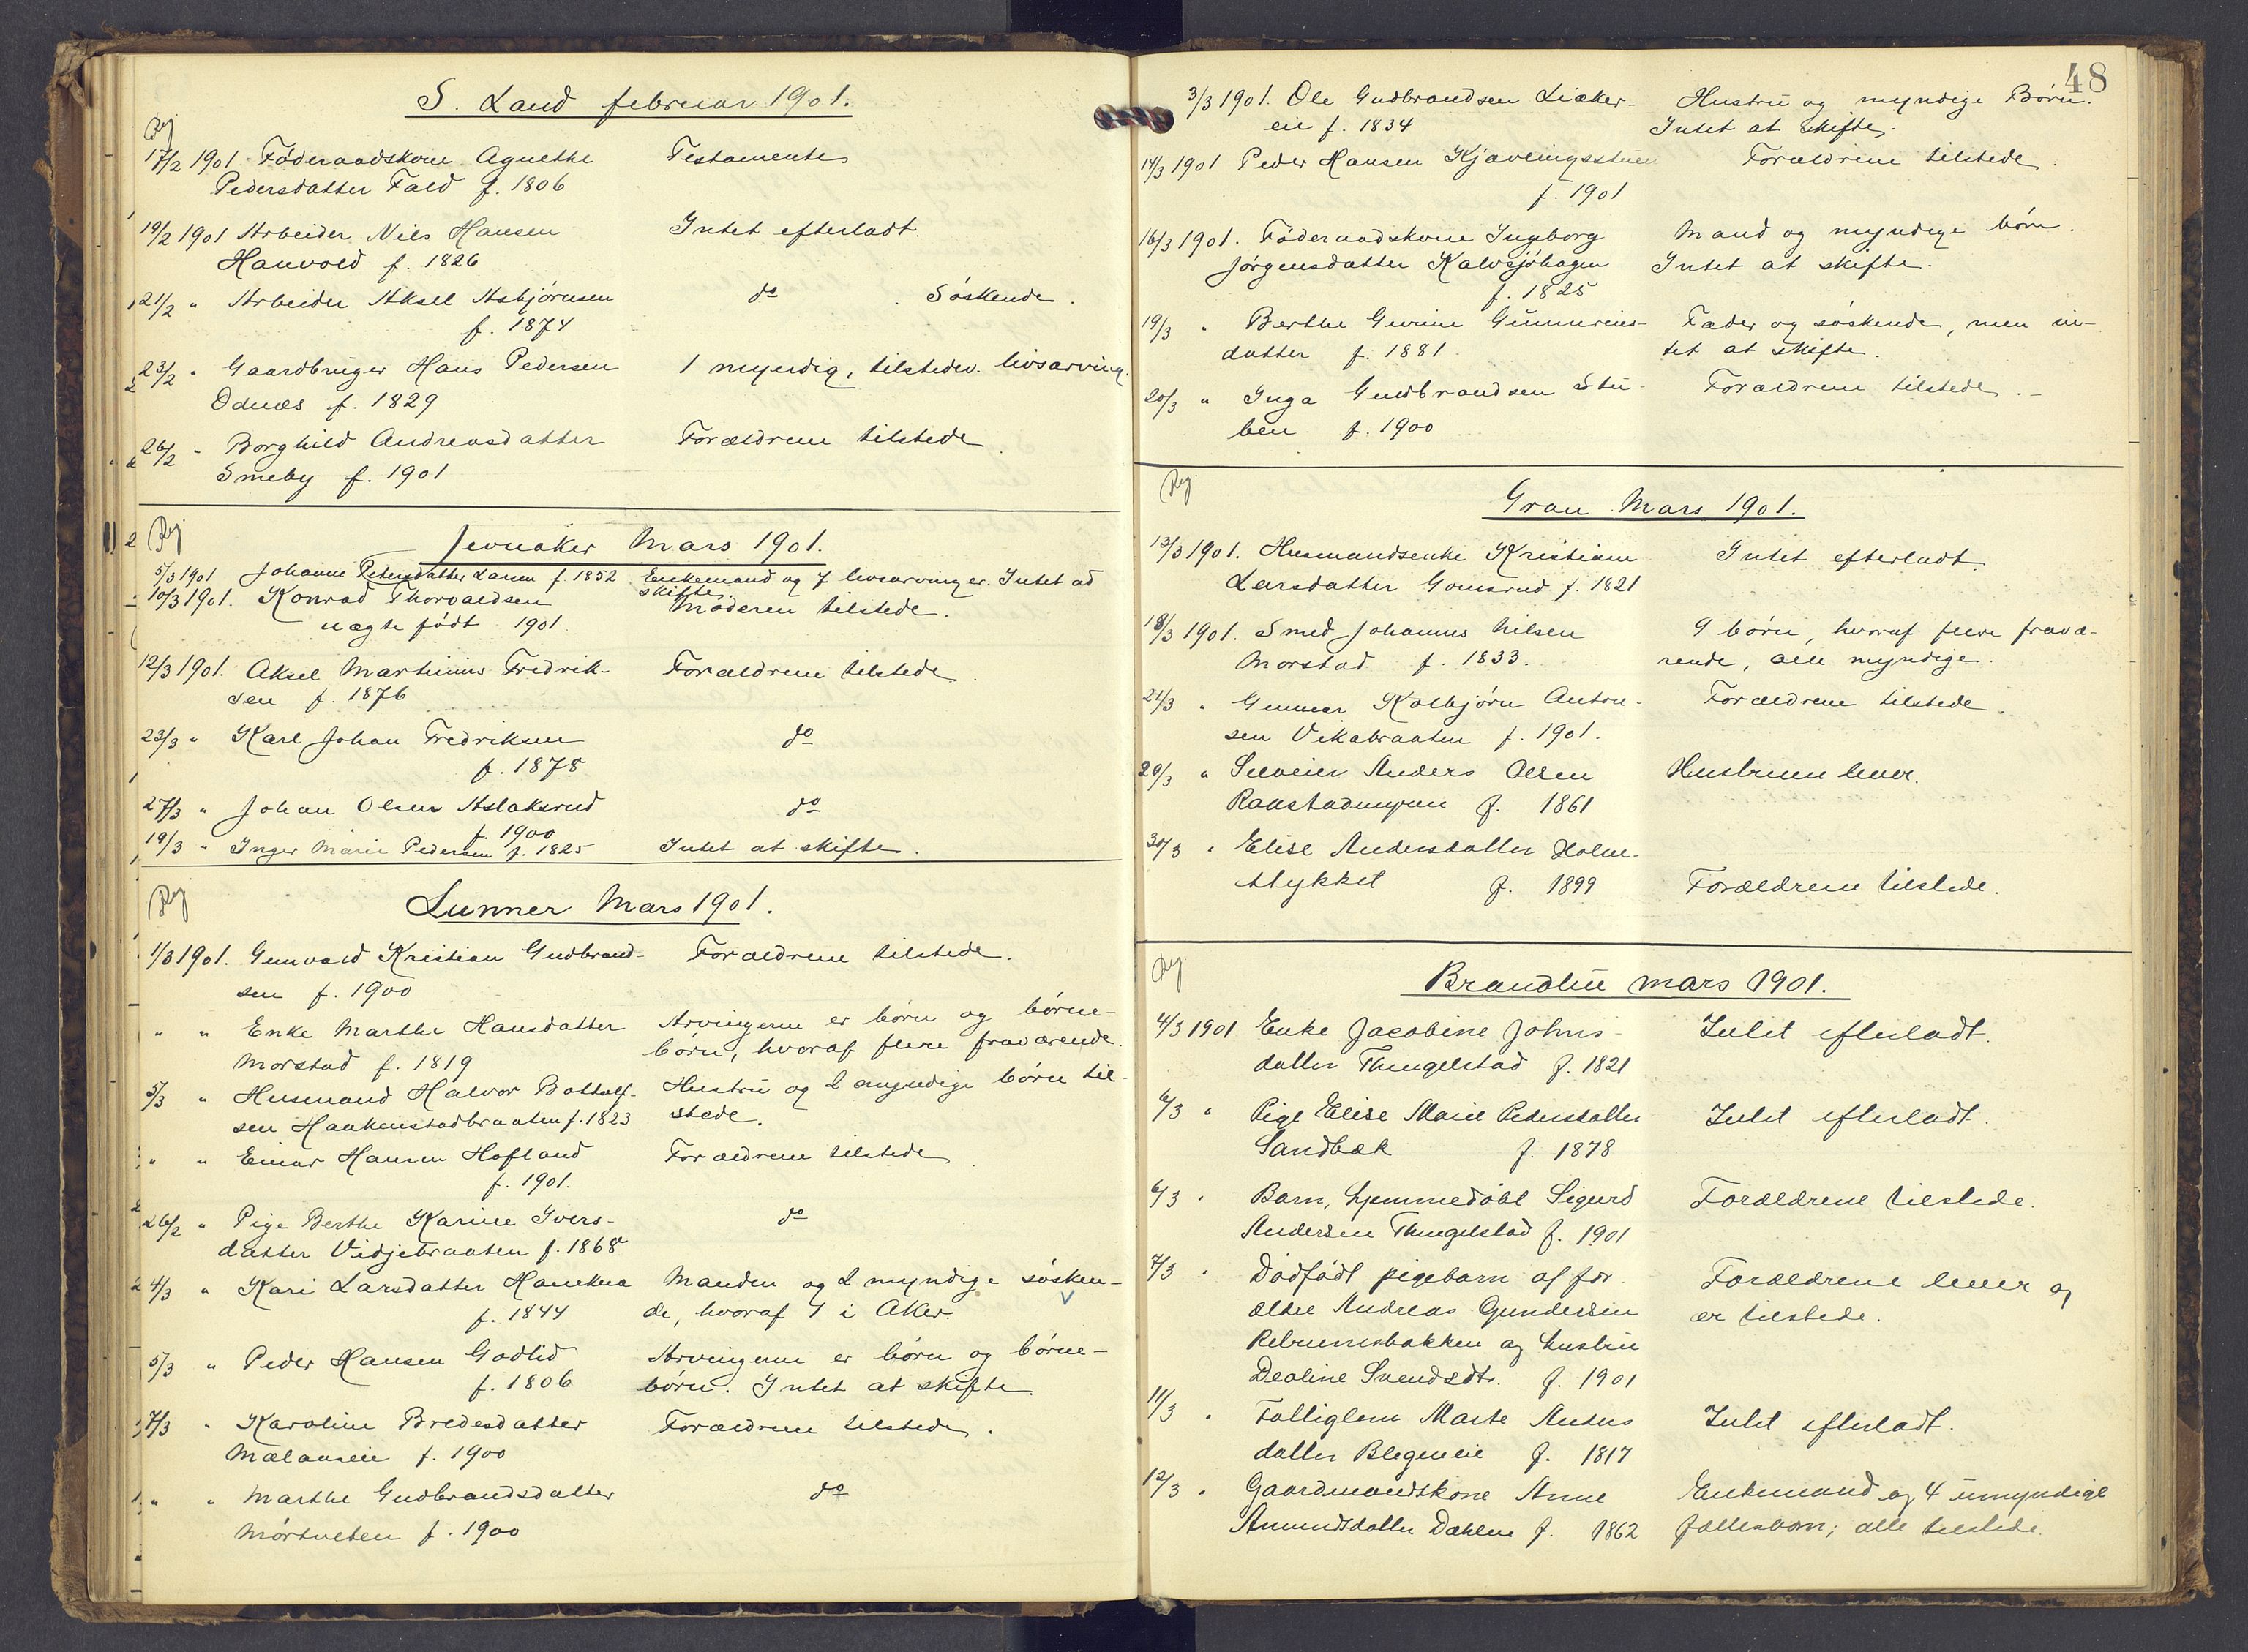 S. Land februar 1901.
Reg
17/2 1901 Föderaadskone Agnethe Testamente
Pedersdatter Fald f. 1806
19/2 1901 Arbeider Niels Hansen Intet efterladt.
Hanvold f. 1826
21/2 " Arbeider Aksel Asbjörnsen do . Söskende.
f. 1874
23/2 " Gaardbruger Hans Pedersen 1 myndig, tilstedev. livsarving.
Odnæs f. 1829
26/2 " Borghild Andreasdatter Forældrene tilstede.
Smeby f. 1901
Reg Jevnaker Mars 1901.
5/3 1901 Johanne Petersdatter Larsen f. 1852 Enkemand og 7 livsarvinger. Intet at
skifte.
10/3 1901. Konrad Thorvaldsen Moderen tilstede.
uægte födt 1901
12/3 1901. Aksel Martinius Fredrik- Forældrene tilstede.
sen f. 1876
23/3 " Karl Johan Fredriksen do
f. 1878
27/3 " Johan Olsen Aslaksrud do
f. 1900
19/3 " Inger Marie Pedersen f. 1825 Intet at skifte.
Reg
Lunner Mars 1901.
1/3 1901. Gunvald Kristian Gudbrand- Forældrene tilstede.
sen f. 1900
" " Enke Marthe Hansdatter Arvingerne er börn og börne-
Morstad f. 1819 börn, hvoraf flere fraværende.
5/3 " Husmand Halvor Bottolf- Hustru og 2 myndige börn til-
sen Haakenstadbraaten f. 1823 stede.
" " Einar Hansen Hofland Forældrene tilstede.
f. 1901.
26/2 " Pige Berthe Karine Ivers- do
datter Vidjebraaten f. 1868
4/3 " Kari Larsdatter Hanekna Manden og 2 myndige sösken-
f. 1844 de, hvoraf 1 i Aker.
5/3 " Peder Hansen Godlid Arvingerne er börn og börne-
f. 1806 börn. Intet at skifte.
7/3 " Karoline Bredesdatter Forældrene tilstede.
Mælanseie f. 1900
" " Marthe Gudbrandsdatter do
Mörtveten f. 1900
48
3/3 1901. Ole Gudbrandsen Liæker- Hustru og myndige Börn.
eie f. 1834 Intet at skifte.
14/3 1901 Peder Hansen Kjæveingsstuen Forældrene tilstede.
f. 1901
16/3 1901. Föderaadskone Ingborg Mand og myndige börn.
Jörgensdatter Kalvsjöhagen Intet at skifte.
f. 1825
19/3 " Berthe Gurine Gunnerius- Fader og söskende, men in-
datter f. 1881. tet at skifte.
20/3 " Inga Gudbrandsen Stu- Forældrene tilstede.
ben f. 1900
Reg
Gran Mars 1901.
13/3 1901. Husmandsenke Kristiane Intet efterladt.
Larsdatter Gomsrud f. 1821
18/3 1901. Smed Johannes Nilsen 9 börn, hvoraf flere fravæ-
Morstad f. 1833. rende, alle myndige.
21/3 " Gunnar Kolbjörn Anton- Forældrene tilstede.
sen Vikabraaten f. 1901.
20/3 " Selveier Anders Olsen Hustruen lever.
Raastadmyren f. 1861
30/3 " Elise Andersdatter Holme-
stykket f. 1899 Forældrene tilstede.
Reg
Brandbu mars 1901.
4/3 1901 Enke Jacobine Johns- Intet efterladt.
datter Thingelstad f. 1821
6/3 " Pige Elise Marie Pedersdatter Intet efterladt.
Sandbæk f. 1878
6/3 " Barn, hjemmedöbt Sigurd Forældrene tilstede.
Andersen Thingelstad f. 1901
7/3 " Dödfödt pigebarn af for- Forældrene lever og
ældre Andreas Gundersen er tilstede.
Rebrumsbakken og hustru
Dealine Svendsdtr. f. 1901
11/3 " Fattiglem Marte Anders Intet efterladt.
datter Blegeneie f. 1817
12/3 " Gaardmandskone Anne Enkemand og 4 umyndige
Amundsdatter Dæhlen f. 1862 fællesbørn; alle tilstede.